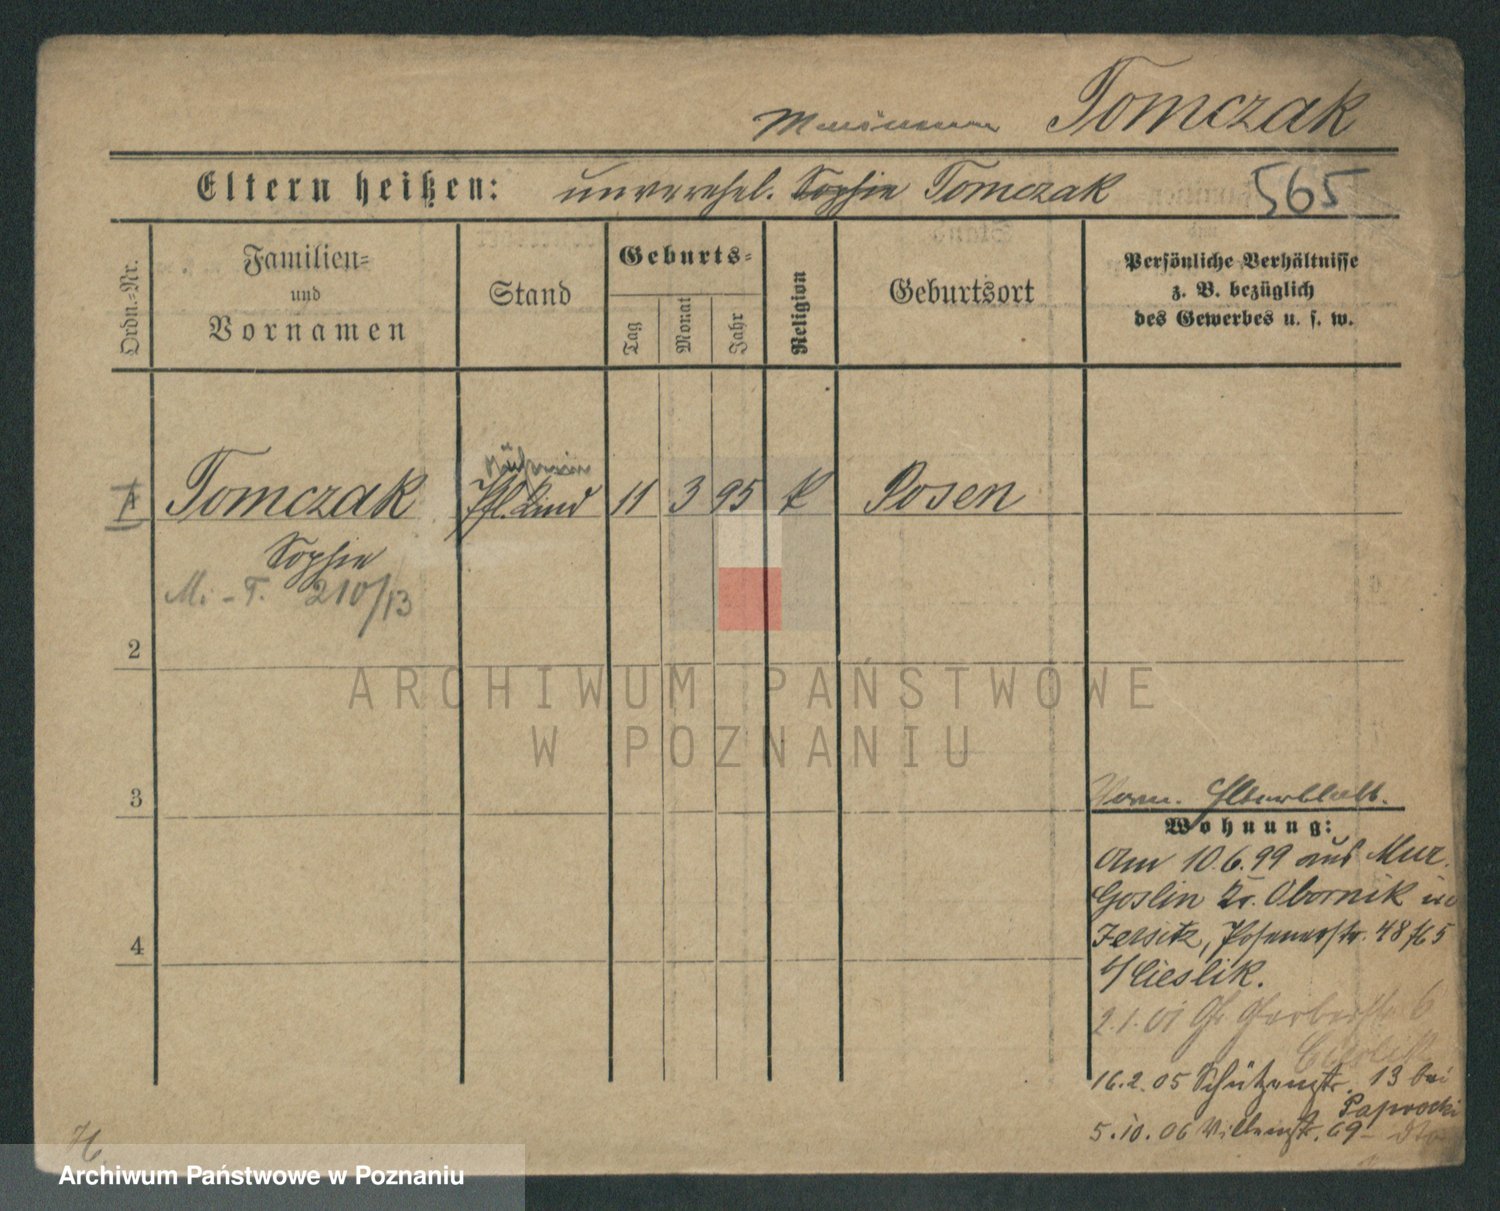 Tomczak
Eltern heißen: unverehel. Sophie Tomczak 565
Ordn.-Nr.
Familien-
und
Vornamen
Stand
Geburts-
Tag
Monat
Jahr
Religion
Geburtsort
Persönliche Verhältnisse
z. B. bezüglich
des Gewerbes u. s. w.
1 Tomczak Pfl. Kind 11 3 95 k Posen
Sophie
M. - T. 210/13
2
3
4
Wohnung:
Am 10.6.99 aus Mur.
Goslin Kr. Obornik in
Jersitz, Posenerstr. 48
b/ Cieslik.
2.1.01 Gr. Gerberstr. 6
Cieslik
16.2.05 Schützenstr. 13 bei
Paprocki
5.10.06 69 - dto
ARCHIWUM PAŃSTWOWE
W POZNANIU
Archiwum Państwowe w Poznaniu